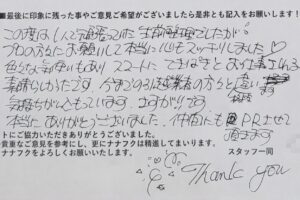 ■最後に印象に残った事やご意見ご希望がございましたら是非とも記入をお願いします!
この度は1人で今迄
プロの方々にお願いして本当に心もスッキリしました♡
色々な気使いもあり スマートに てきぱきと お仕事される
素晴らしい方々です。今までの引越業者の方々と違い
気持ちが
本当に ありがとうございました。仲間にも PRさせて
頂きます
トにご協力いただきありがとうございました。
貴重なご意見を参考にし、更にナナフクは精進してまいります。
ナナフクをよろしくお願いいたします。
スタッフ一同
Thank you